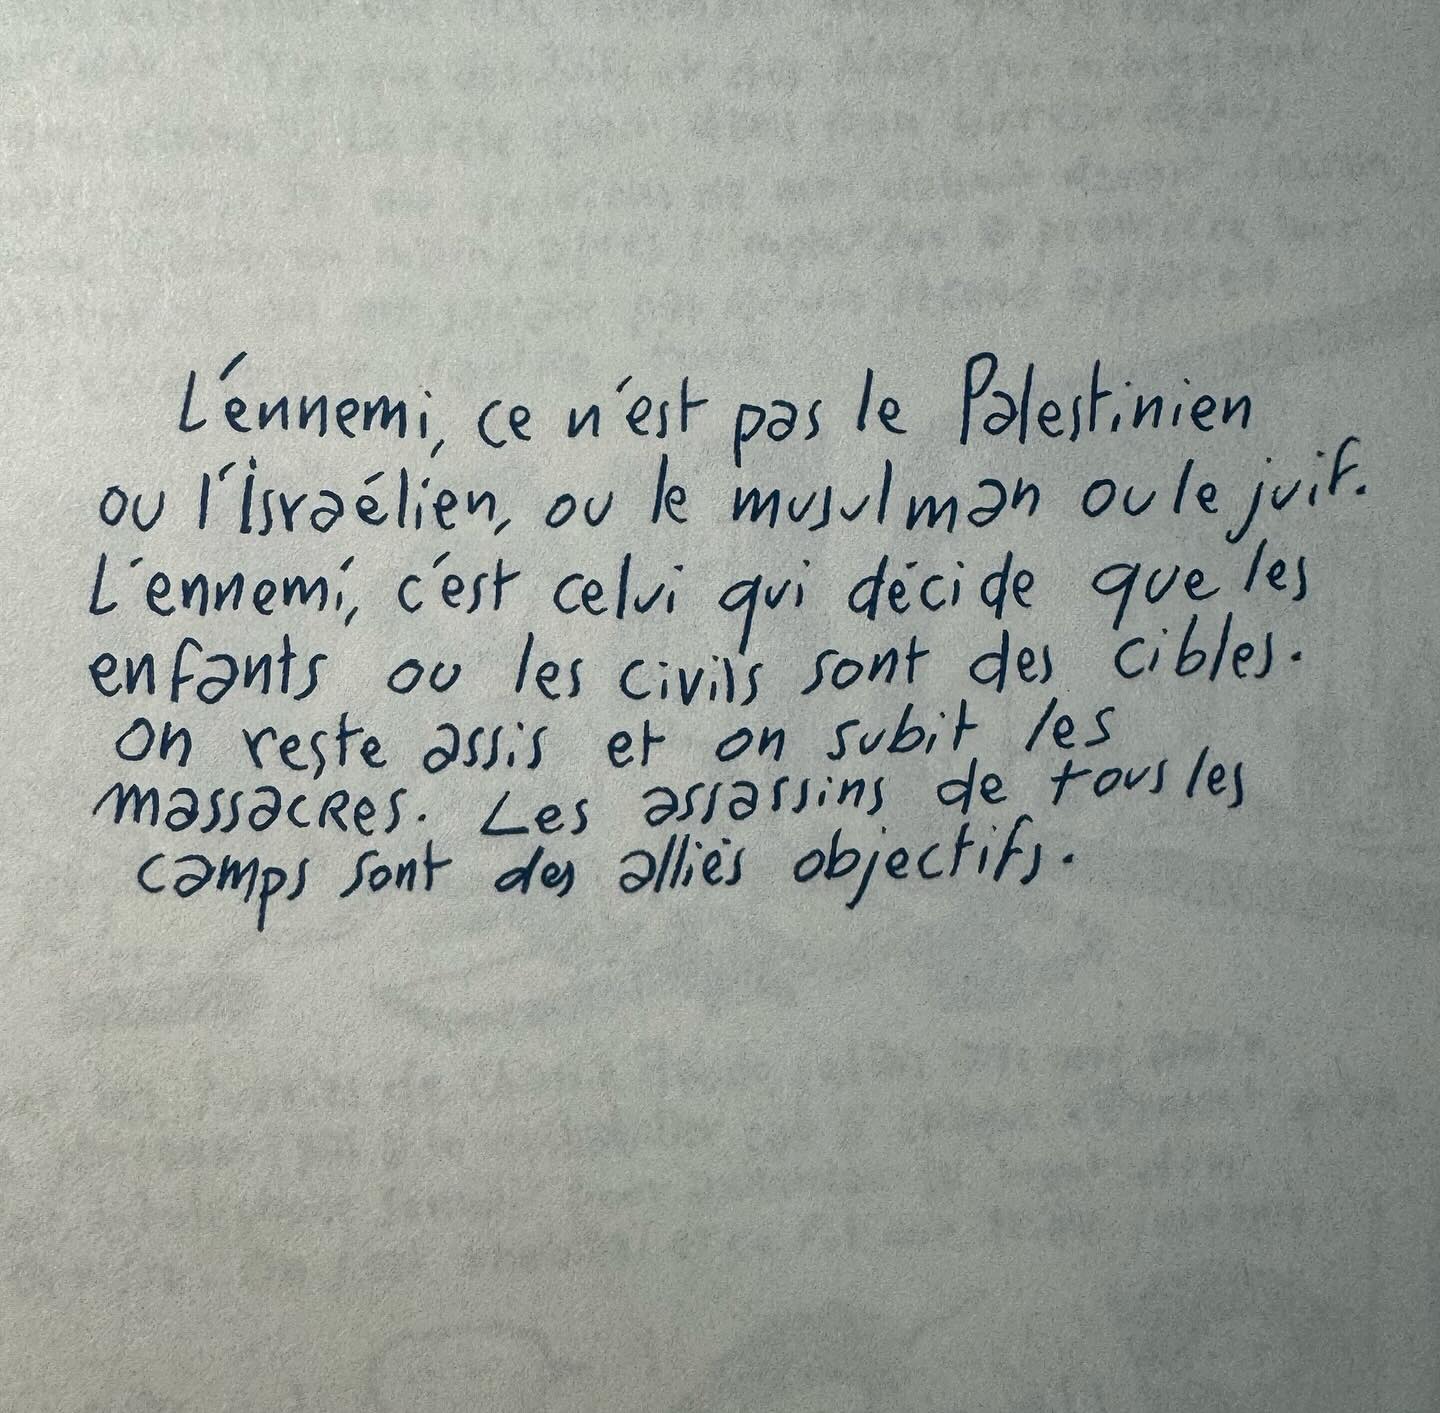 L'ennemi, ce n'est pas le Palestinien
ou l'Israélien, ou le musulman ou le juif.
L'ennemi, c'est celui qui décide que les
enfants ou les civils sont des cibles.
on reste assis et on subit les
massacres. Les assassins de tous les
camps sont des alliés objectifs.